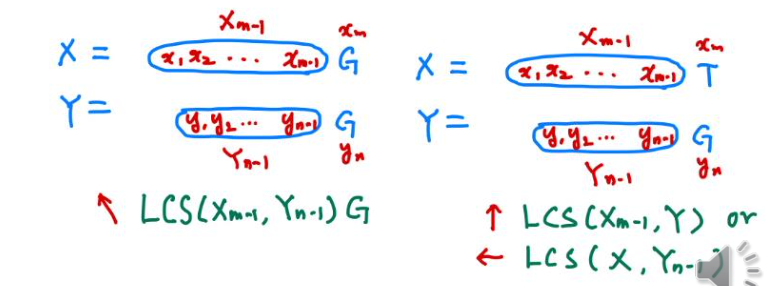 Xm-1 xm
X = x1 x2 ... xm-1 G
Y = y1 y2 ... yn-1 G
Yn-1 yn
↖ LCS(Xm-1, Yn-1) G
Xm-1 xm
X = x1 x2 ... xm-1 T
Y = y1 y2 ... yn-1 G
Yn-1 yn
↑ LCS(Xm-1, Y) or
← LCS(X, Yn-1)